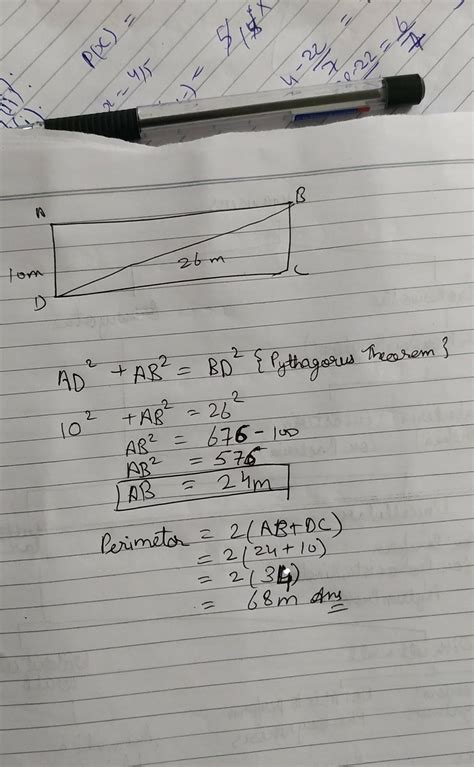 P(x) =
x = 4/5
4-22/7
A
B
10m
26 m
D
C
AD² + AB² = BD² {Pythagorus Theorem}
10² + AB² = 26²
AB² = 676 - 100
AB² = 576
AB = 24m
Perimeter = 2(AB+DC)
= 2(24+10)
= 2(34)
= 68m Ans